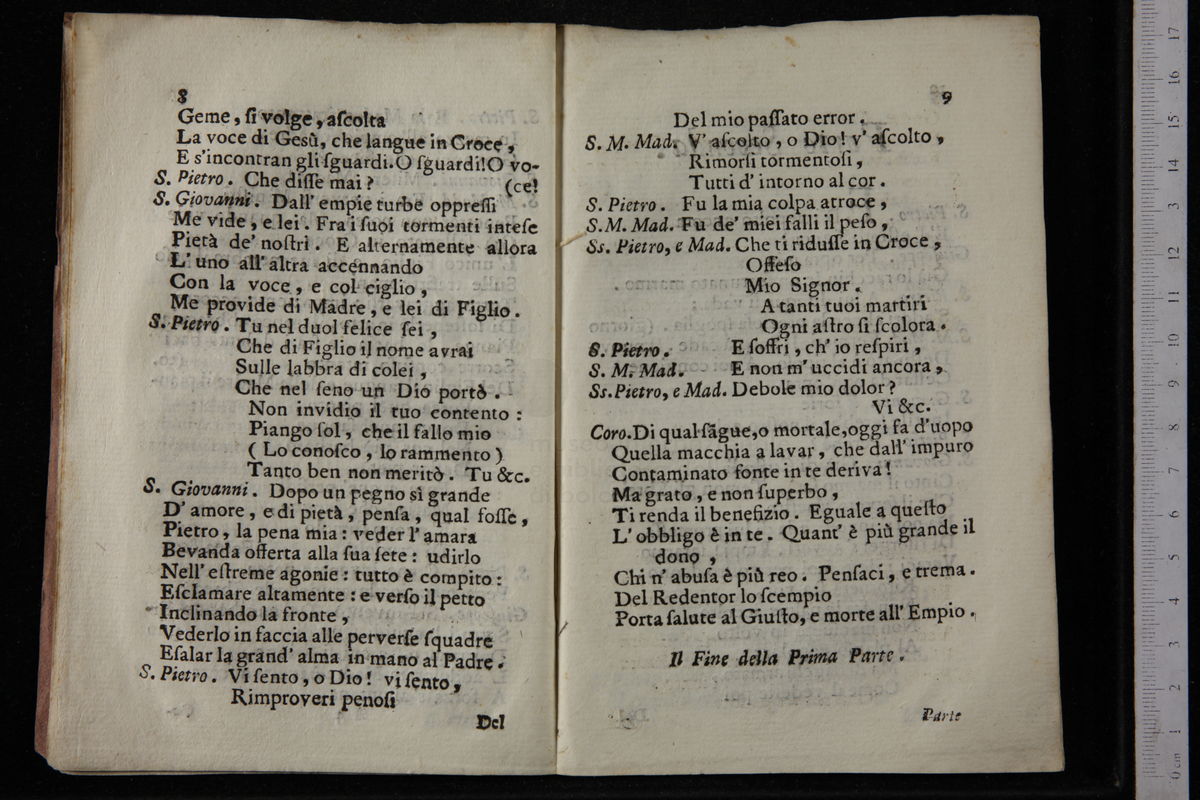 8
Geme, ſi volge, aſcolta
La voce di Gesù, che langue in Croce,
E s'incontran gli ſguardi. O ſguardi! O vo-
S. Pietro. Che diſſe mai? (ce!
S. Giovanni. Dall' empie turbe oppreſſi
Me vide, e lei. Fra i ſuoi tormenti inteſe
Pietà de' noſtri. E alternamente allora
L' uno all' altra accennando
Con la voce, e col ciglio,
Me provide di Madre, e lei di Figlio.
S. Pietro. Tu nel duol felice ſei,
Che di Figlio il nome avrai
Sulle labbra di colei,
Che nel ſeno un Dio portò.
Non invidio il tuo contento:
Piango ſol, che il fallo mio
(Lo conoſco, lo rammento)
Tanto ben non meritò. Tu &c.
S. Giovanni. Dopo un pegno sì grande
D' amore, e di pietà, penſa, qual foſſe,
Pietro, la pena mia: veder l' amara
Bevanda offerta alla ſua ſete: udirlo
Nell' eſtreme agonie: tutto è compito:
Eſclamare altamente: e verſo il petto
Inclinando la fronte,
Vederlo in faccia alle perverſe ſquadre
Eſalar la grand' alma in mano al Padre.
S. Pietro. Vi ſento, o Dio! vi ſento,
Rimproveri penoſi
Del
9
Del mio paſſato error.
S. M. Mad. V' aſcolto, o Dio! v' aſcolto,
Rimorſi tormentoſi,
Tutti d' intorno al cor.
S. Pietro. Fu la mia colpa atroce,
S. M. Mad. Fu de' miei falli il peſo,
Ss. Pietro, e Mad. Che ti riduſſe in Croce,
Offeſo
Mio Signor.
A tanti tuoi martiri
Ogni aſtro ſi ſcolora.
S. Pietro. E ſoffri, ch' io reſpiri,
S. M. Mad. E non m' uccidi ancora,
Ss. Pietro, e Mad. Debole mio dolor?
Vi &c.
Coro. Di qual sãgue, o mortale, oggi fa d'uopo
Quella macchia a lavar, che dall' impuro
Contaminato fonte in te deriva!
Ma grato, e non ſuperbo,
Ti renda il benefizio. Eguale a queſto
L' obbligo è in te. Quant' è più grande il
dono,
Chi n' abuſa è più reo. Penſaci, e trema.
Del Redentor lo ſcempio
Porta ſalute al Giuſto, e morte all' Empio.
Il Fine della Prima Parte.
Parte
0 cm 1 2 3 4 5 6 7 8 9 10 11 12 13 14 15 16 17